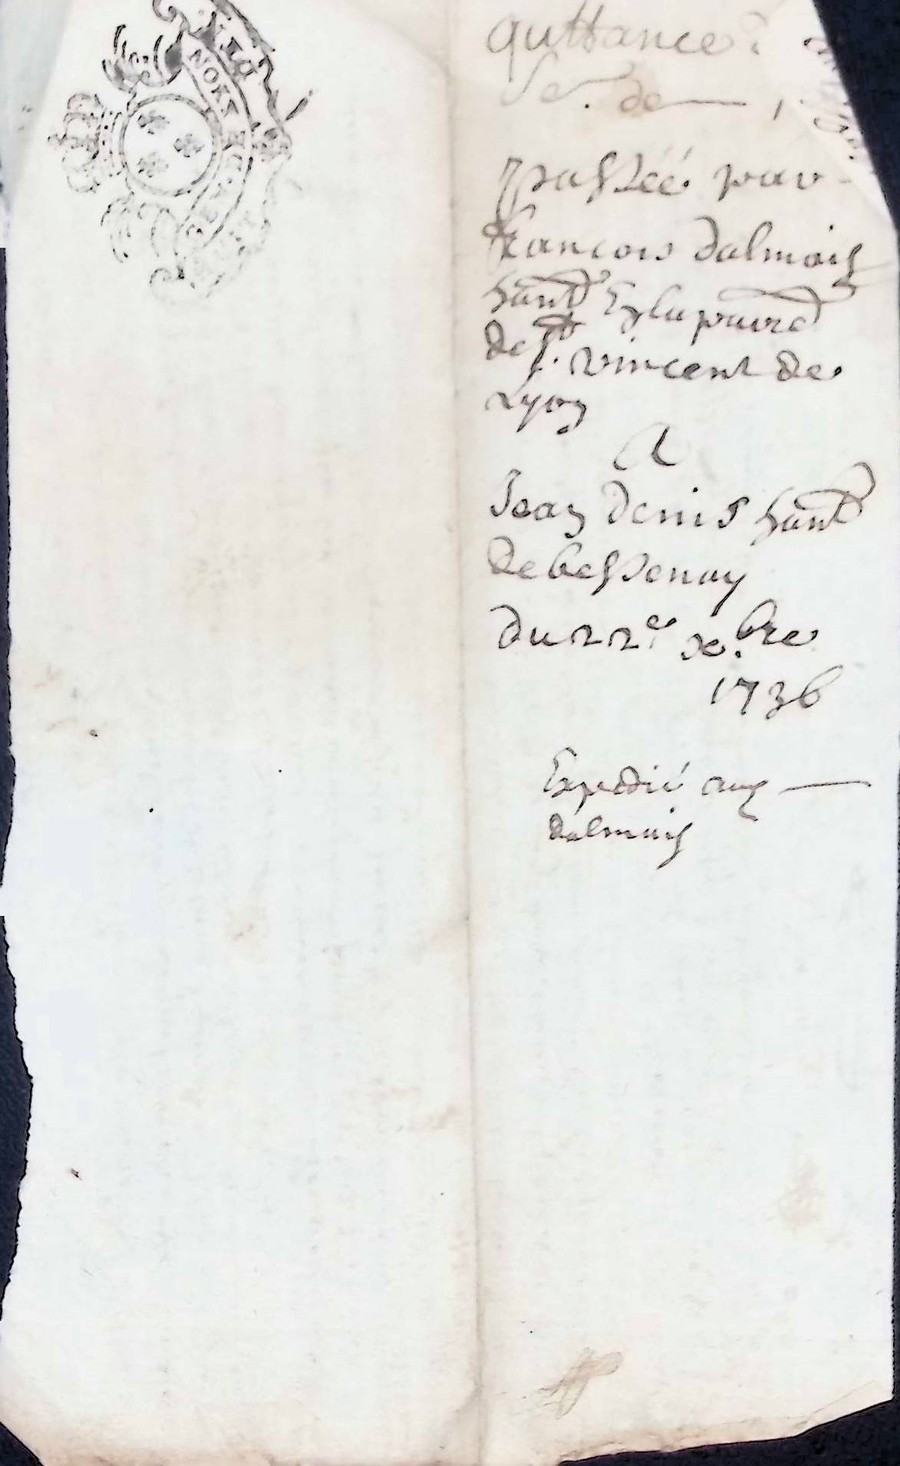 quittance
de
passéé par
francois dalmais
hant En la parre
de St. vincent de
Lyon
A
Jean denis hant
de bessenay
du 22e xbre
1736
Expedié aud
dalmais